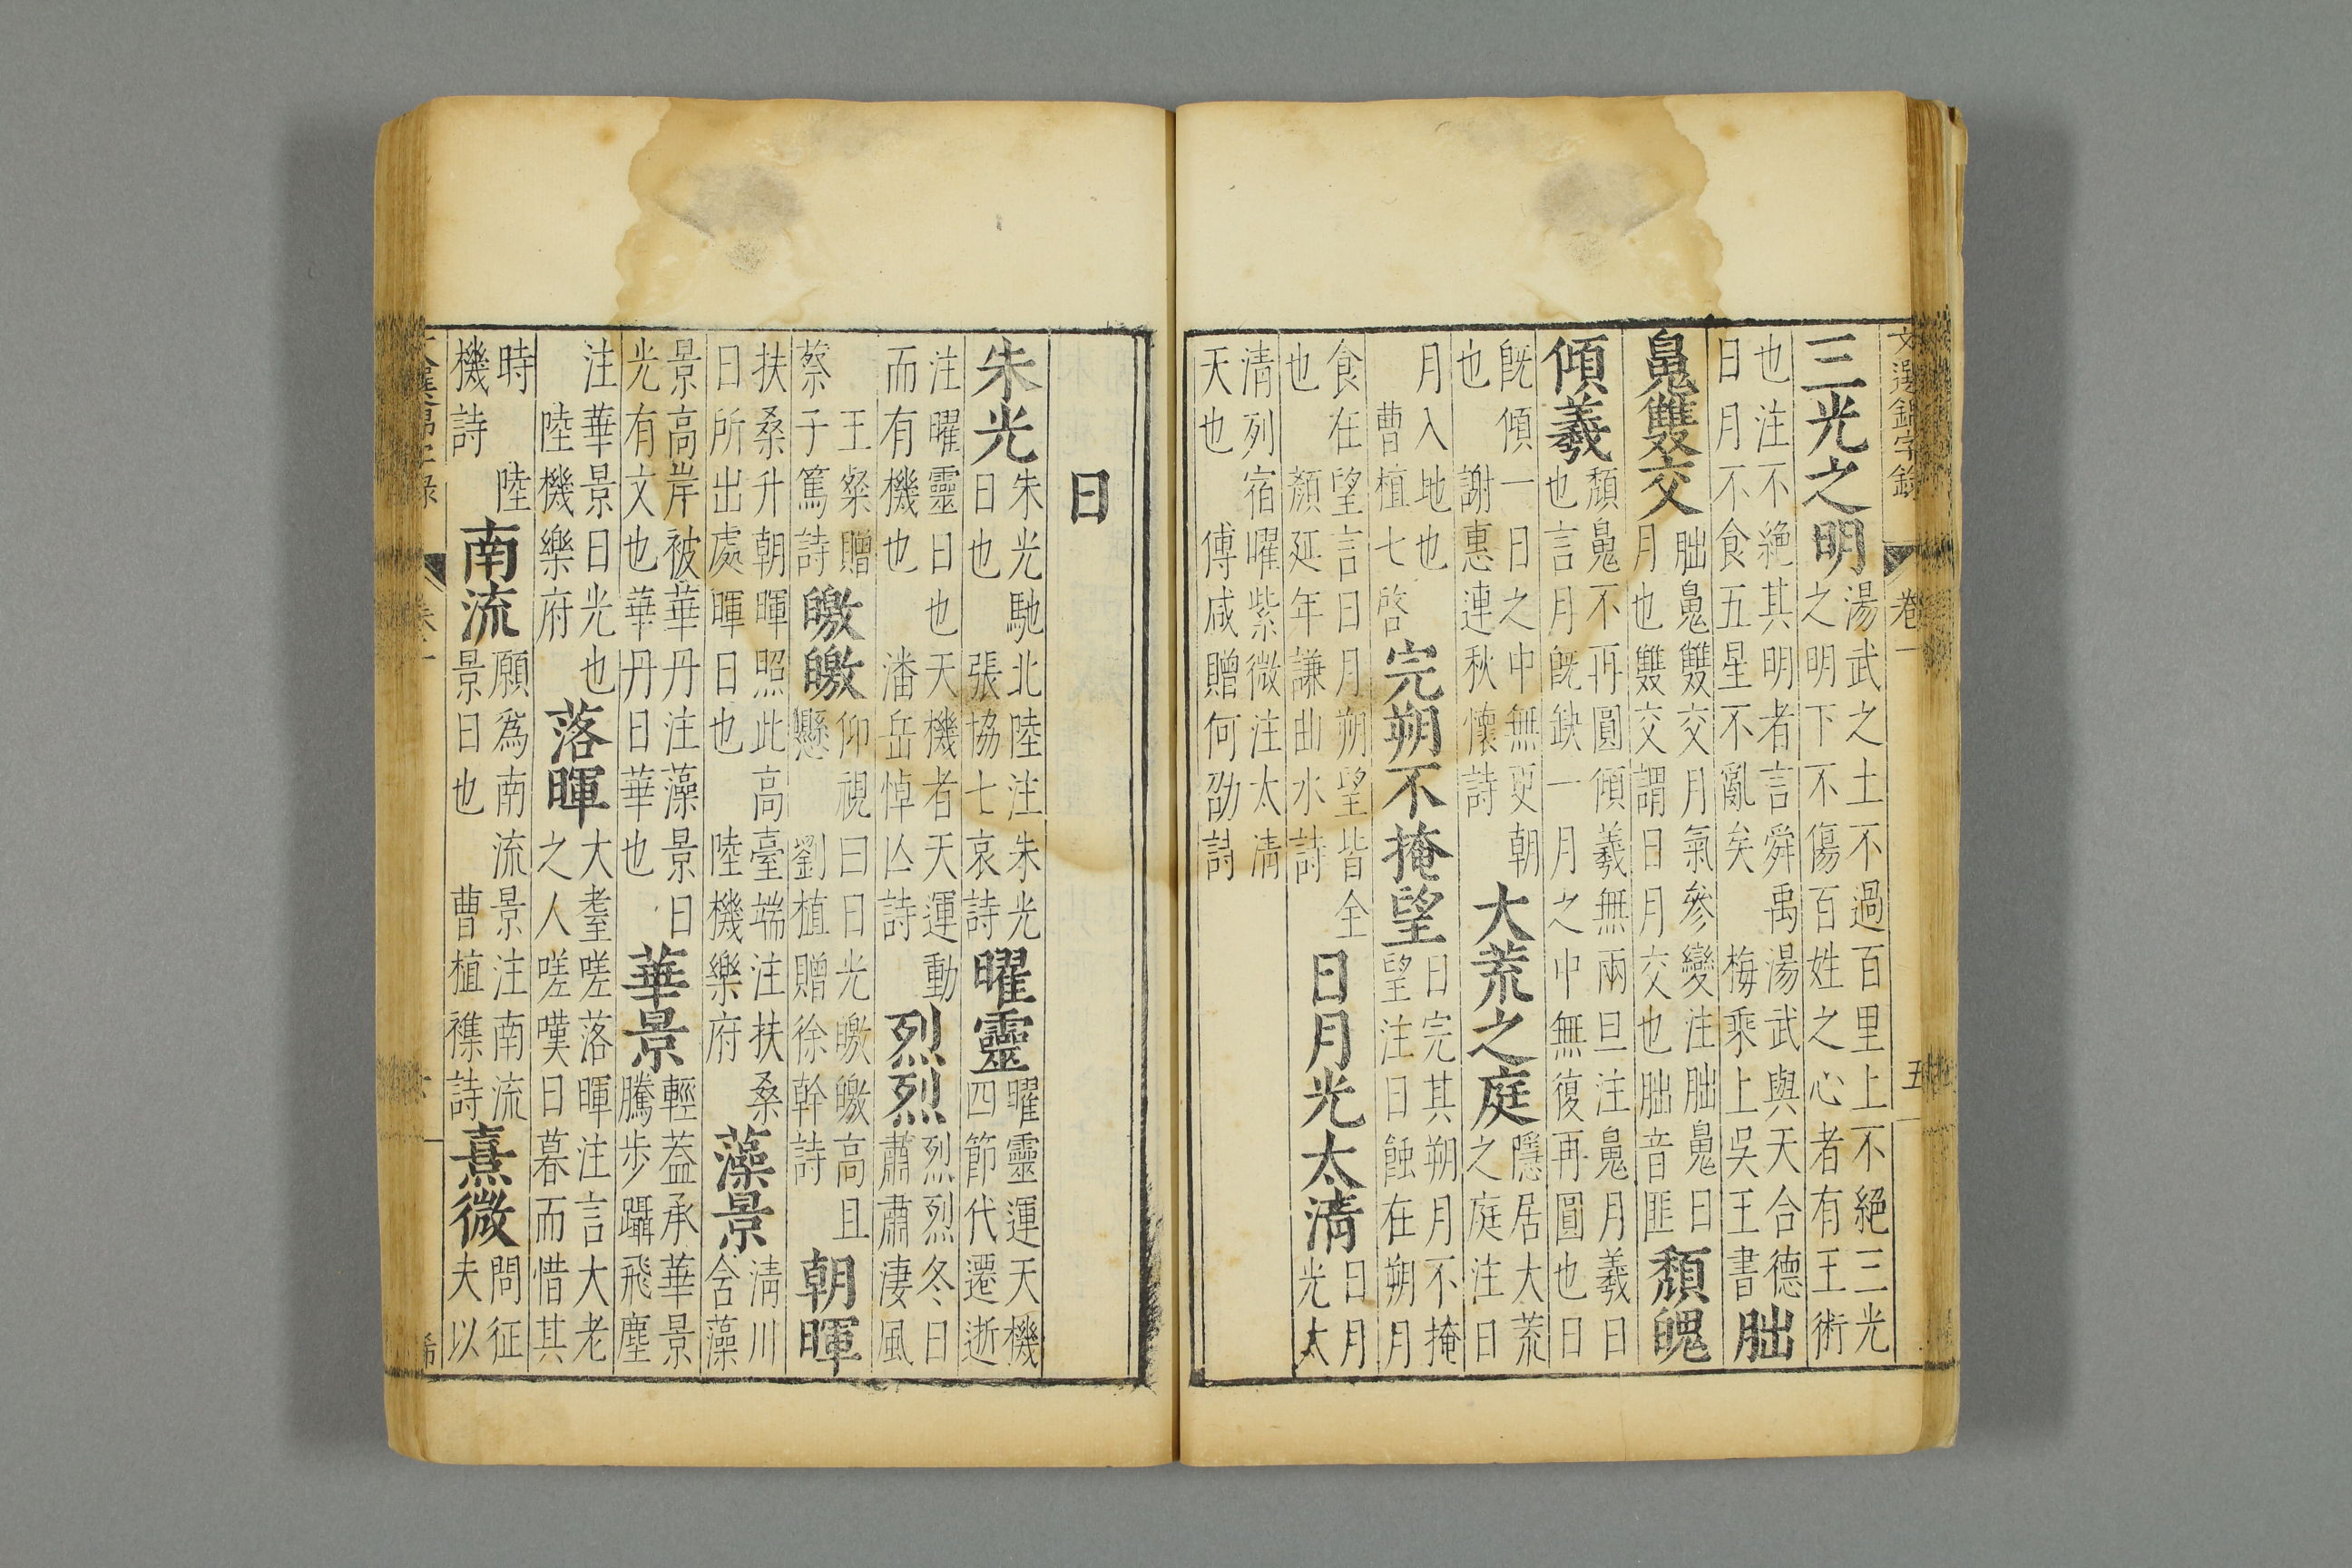 文選錦字錄 卷一 五
三光之明
湯武之土不過百里上不絕三光
之明下不傷百姓之心者有王術
也注不絕其明者言舜禹湯武與天合德
日月不食五星不亂矣 梅乘上吳王書
朏
魄雙交
朏魄雙交月氣參變注朏魄日
月也雙交謂日月交也朏音匪
頽魄
傾羲
頽魄不再圓傾羲無兩旦注魄月羲日
也言月旣缺一月之中無復再圓也日
旣傾一日之中無更朝
也 謝惠連秋懷詩
大荒之庭
隱居大荒
之庭注日
月入地也
曹植七啓
完朔不掩望
日完其朔月不掩
望注日蝕在朔月
食在望言日月朔望皆全
也 顏延年謙曲水詩
日月光太清
日月
光太
清列宿曜紫微注太清
天也 傅咸贈何劭詩
日
朱光
朱光馳北陸注朱光
日也 張協七哀詩
曜靈
曜靈運天機
四節代遷逝
注曜靈日也天機者天運動
而有機也 潘岳悼亾詩
烈烈
烈烈冬日
肅肅淒風
王粲贈
蔡子篤詩
皦皦
仰視曰日光皦皦高且
懸 劉植贈徐幹詩
朝暉
扶桑升朝暉照此高臺端注扶桑
日所出處暉日也 陸機樂府
藻景
清川
含藻
景高岸被華丹注藻景日
光有文也華丹日華也
華景
輕蓋承華景
騰步躡飛塵
注華景日光也
陸機樂府
落暉
大耋嗟落暉注言大老
之人嗟嘆日暮而惜其
時 陸
機詩
南流
願為南流景注南流
景日也 曹植襍詩
熹微
問征
夫以